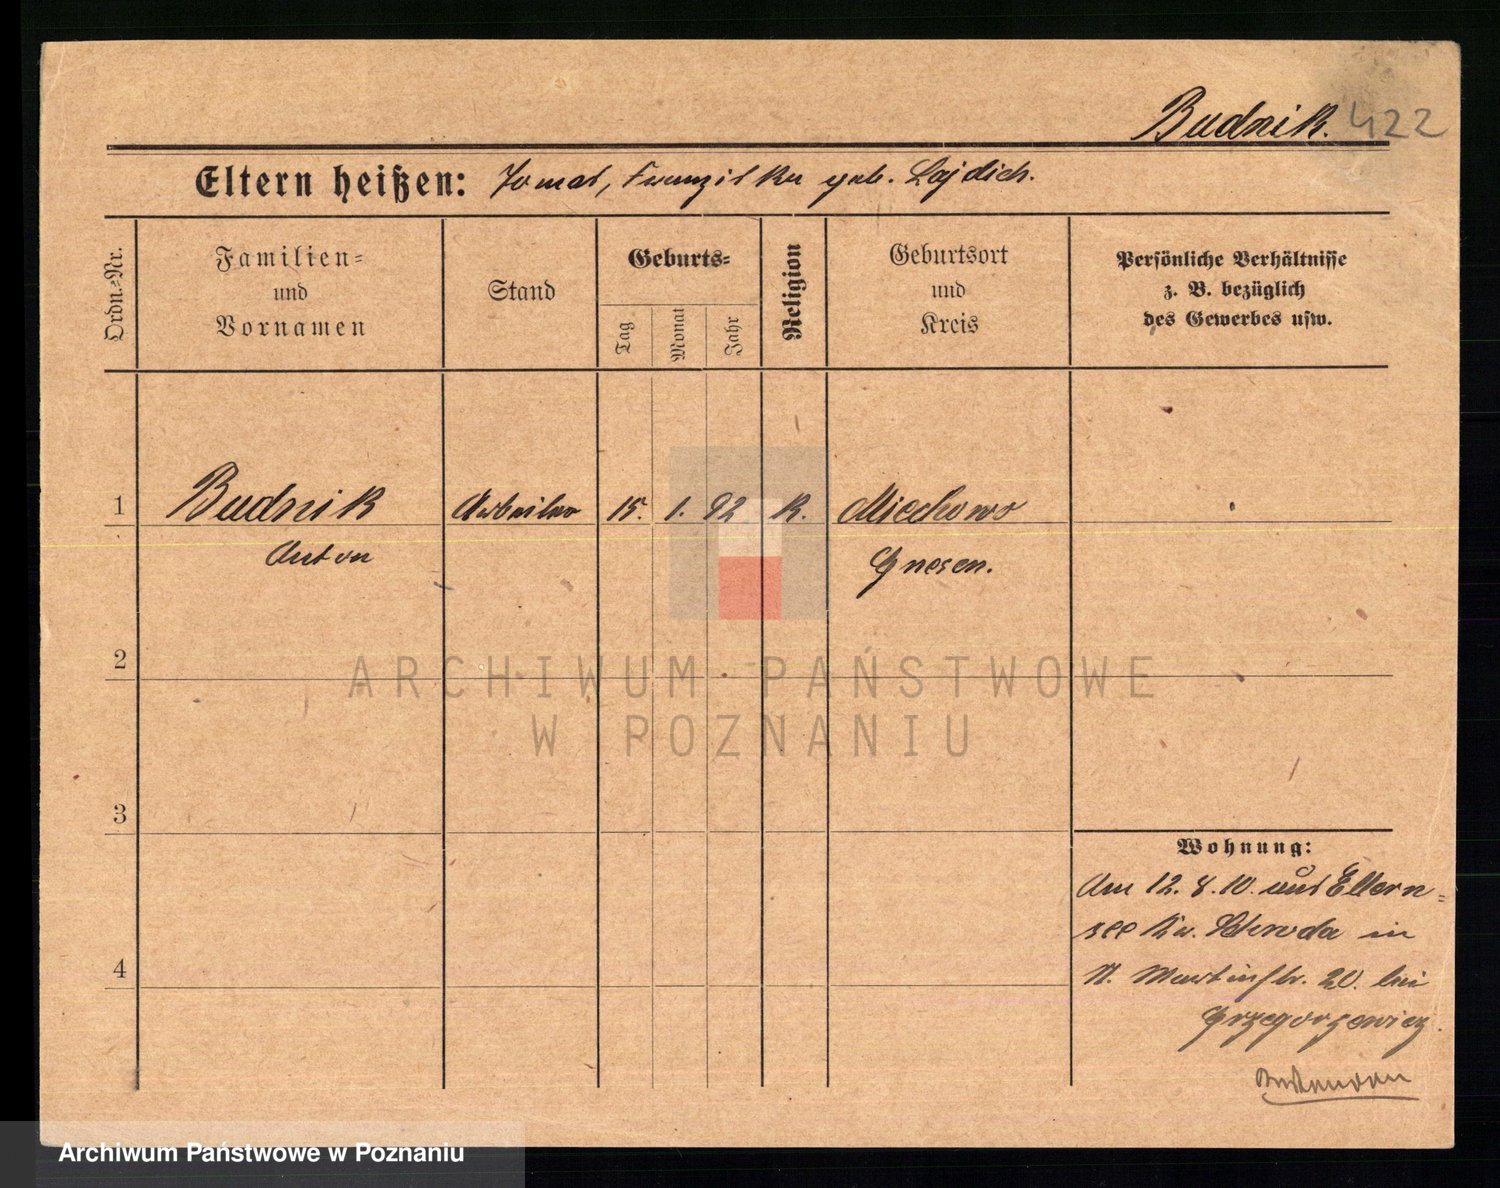 Budnik. 422
Eltern heißen: Tomas, Franziska geb. Lajdich.
Ordn.=Nr.
Familien=
und
Vornamen
Stand
Geburts=
Tag
Monat
Jahr
Religion
Geburtsort
und
Kreis
Persönliche Verhältnisse
z. B. bezüglich
des Gewerbes usw.
1
Budnik Arbeiter 15. 1. 92 K. Miechowo
Anton Gnesen.
2
3
4
Wohnung:
Am 12. 8. 10. aus Ellern=
see Kr. Schroda in
St. Martinstr. 20. bei
Grzegorzewicz.
ARCHIWUM PAŃSTWOWE
W POZNANIU
Archiwum Państwowe w Poznaniu